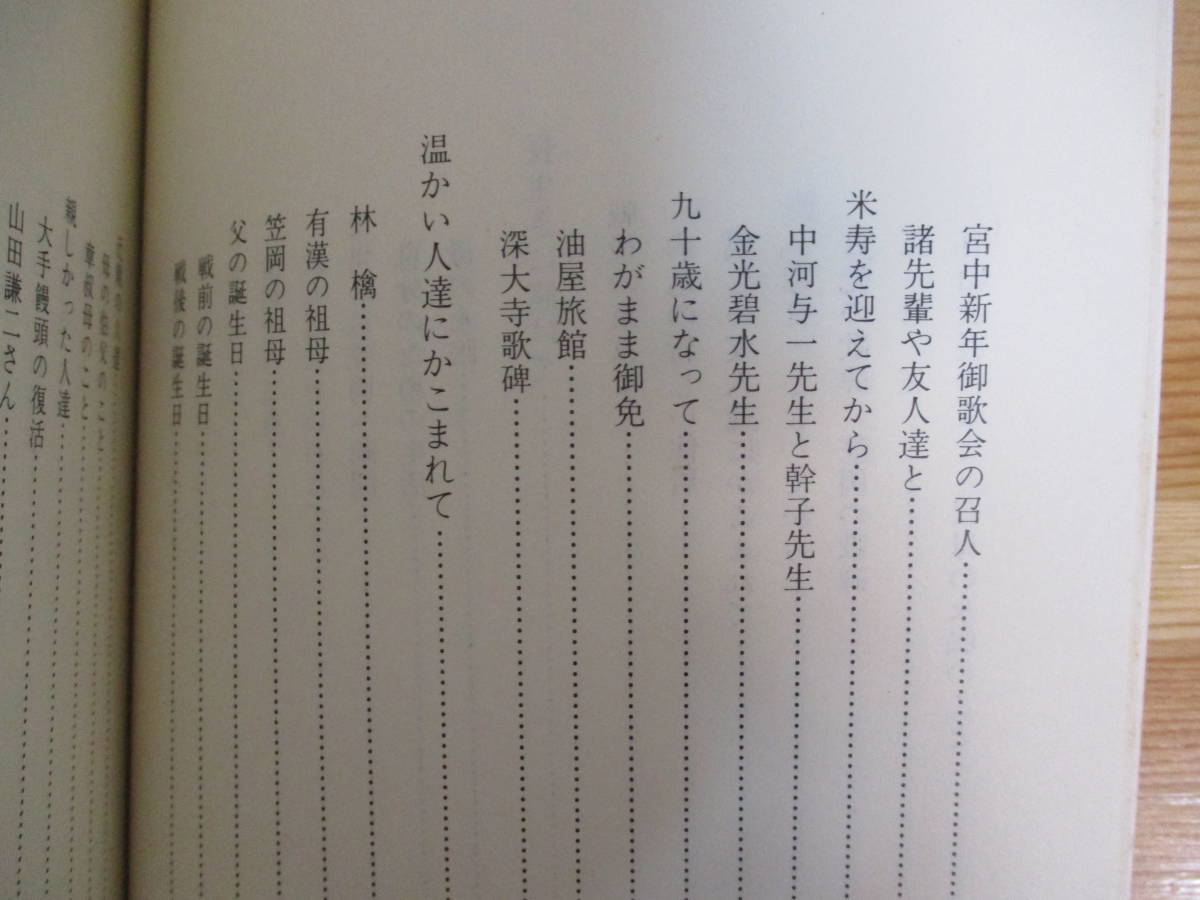 宮中新年御歌会の召人
諸先輩や友人達と
米寿を迎えてから
中河与一先生と幹子先生
金光碧水先生
九十歳になって
わがまま御免
油屋旅館
深大寺歌碑
温かい人達にかこまれて
林檎
有漢の祖母
笠岡の祖母
父の誕生日
戦前の誕生日
戦後の誕生日
母の伯父のこと
叔母のこと
親しかった人達
大手饅頭の復活
山田謙二さん